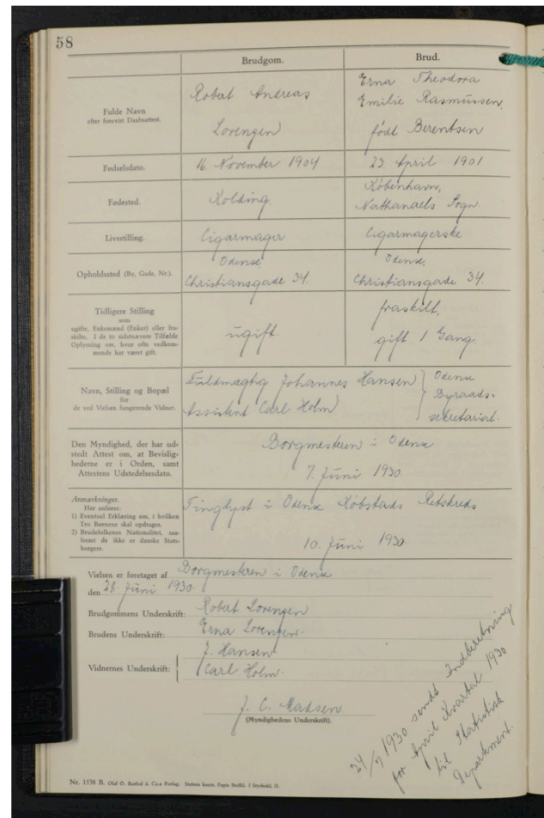 58
Brudgom.
Brud.
Fulde Navn
efter forevist Daabsattest.
Robat Andreas
Lorenzen
Erna Theodora
Emilie Rasmussen,
født Berentsen
Fødselsdato.
16 November 1904
23 April 1901
Fødested.
Kolding
København,
Nathanaels Sogn
Livsstilling.
Cigarmager
Cigarmagerske
Opholdssted (By, Gade, Nr.).
Odense
Christiansgade 34.
Odense,
Christiansgade 34.
Tidligere Stilling
som
ugifte, Enkemænd (Enker) eller fra-
skilte. I de to sidstnævnte Tilfælde
Oplysning om, hvor ofte vedkom-
mende har været gift.
ugift
fraskilt,
gift 1 Gang
Navn, Stilling og Bopæl
for
de ved Vielsen fungerende Vidner.
Fuldmægtig Johannes Hansen
Assistent Carl Holm
Odense
Byraads-
sekretariat.
Den Myndighed, der har ud-
stedt Attest om, at Betingel-
hederne er i Orden, samt
Attestens Udstedelsesdato.
Borgmesteren i Odense
7. Juni 1930
Anmærkninger.
Her anføres:
1) Eventuel Erklæring om, i hvilken
Tro Børnene skal opdrages.
2) Brudefolkenes Nationalitet, saa-
fremt de ikke er danske Stats-
borgere.
Tinglyst i Odense Købstads Retskreds
10. Juni 1930
Vielsen er foretaget af Borgmesteren i Odense
den 28. Juni 1930.
Brudgommens Underskrift: Robat Lorenzen
Brudens Underskrift: Erna Lorenzen.
Vidnernes Underskrift:
J. Hansen
Carl Holm.
J. C. Madsen
(Myndighedens Underskrift).
24/7 1930 sendt Indberetning
for April Kvartal 1930
til Statistisk
Departement.
Nr. 1538 B.